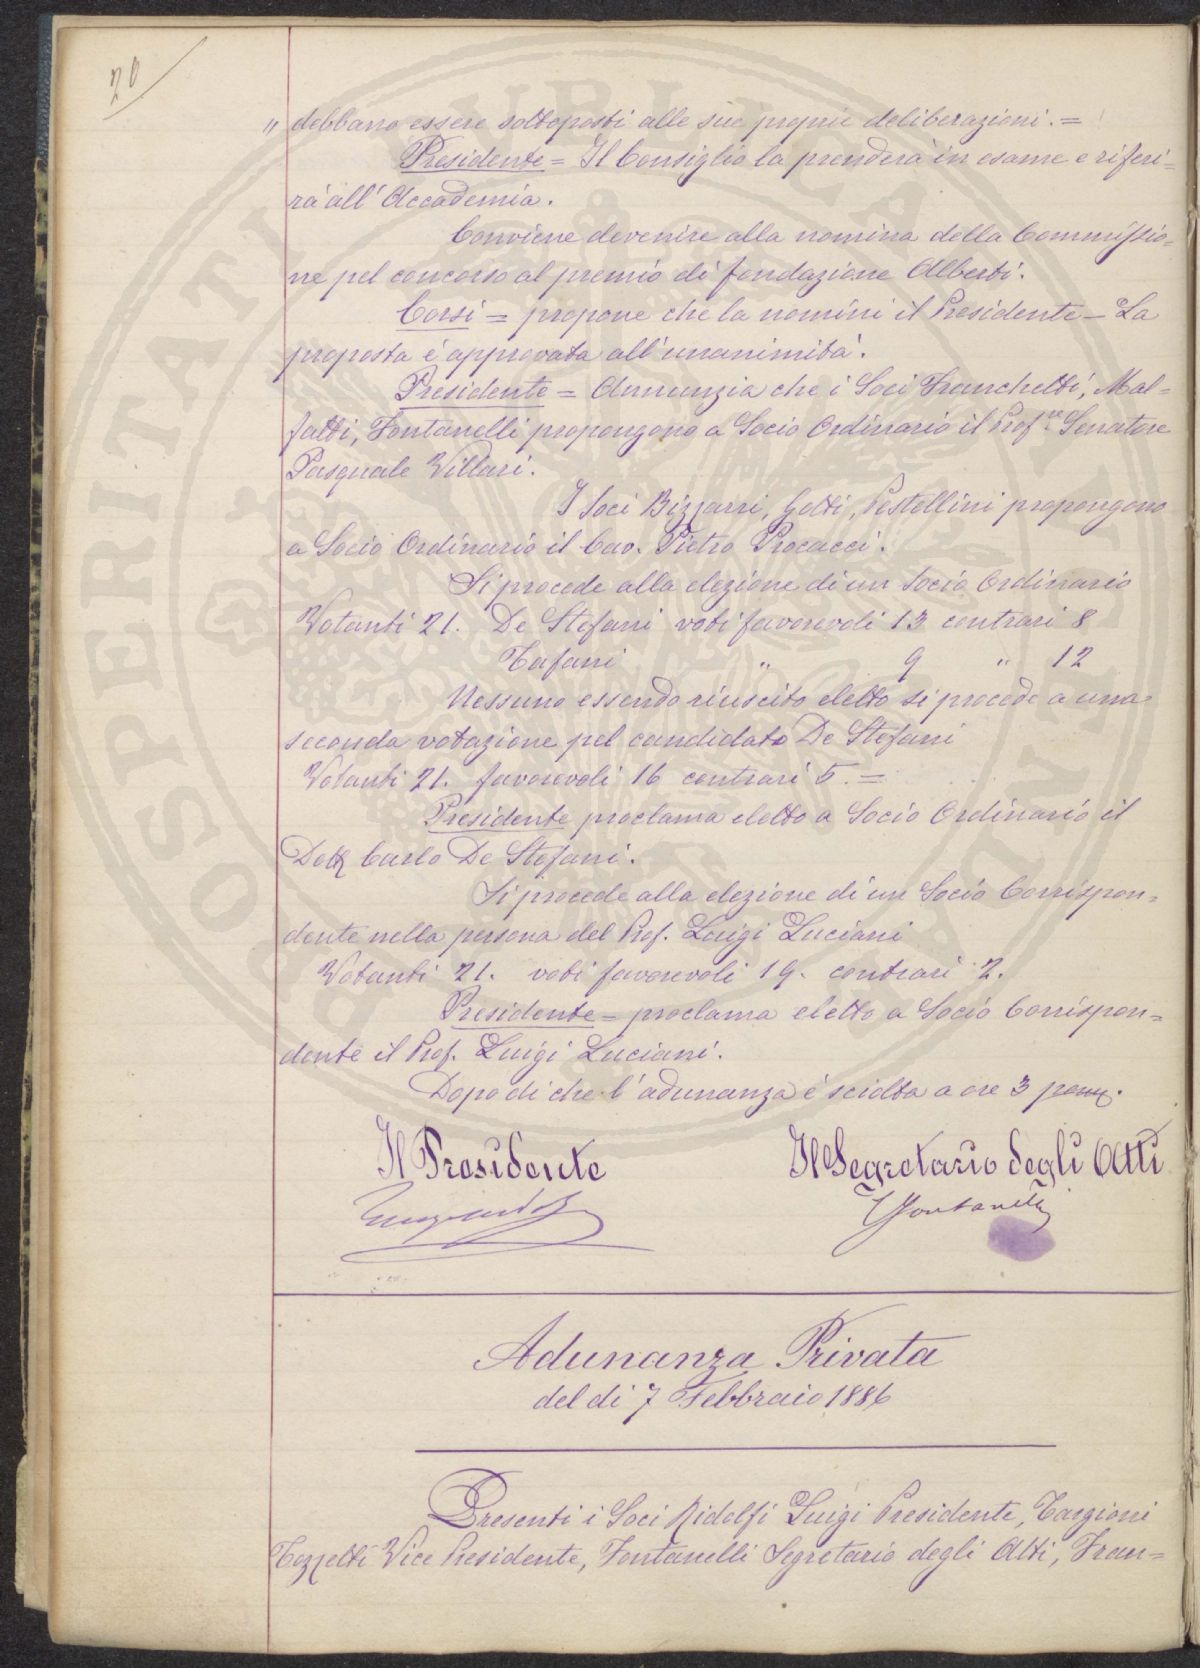 20
" debbano essere sottoposti alle sue proprie deliberazioni. =
Presidente = Il Consiglio la prenderà in esame e riferi=
rà all' Accademia.
Conviene devenire alla nomina della Commissio=
ne pel concorso al premio di fondazione Alberti.
Corsi = propone che la nomini il Presidente – La
proposta è approvata all' unanimità.
Presidente = Annunzia che i Soci Franchetti, Mal=
fatti, Fontanelli propongono a Socio Ordinario il Profre Senatore
Pasquale Villari.
I Soci Bizzarri, Gotti, Pestellini propongono
a Socio Ordinario il Cav. Pietro Procacci.
Si procede alla elezione di un Socio Ordinario
Votanti 21. De Stefani voti favorevoli 13 contrari 8
Tafani " 9 " 12
Nessuno essendo riuscito eletto si procede a una
seconda votazione pel candidato De Stefani
Votanti 21. favorevoli 16 contrari 5. =
Presidente proclama eletto a Socio Ordinario il
Dott Carlo De Stefani.
Si procede alla elezione di un Socio Corrispon=
dente nella persona del Prof. Luigi Luciani
Votanti 21. voti favorevoli 19. contrari 2.
Presidente = proclama eletto a Socio Corrispon=
dente il Prof. Luigi Luciani.
Dopo di che l' adunanza è sciolta a ore 3 pom.
Il Presidente Il Segretario degli Atti
Fontanelli
Adunanza Privata
del dì 7 Febbraio 1886
Presenti i Soci Ridolfi Luigi Presidente, Targioni
Tozzetti Vice Presidente, Fontanelli Segretario degli Atti, Fran=
PROSPERITATI PUBLICAE AUGENDAE